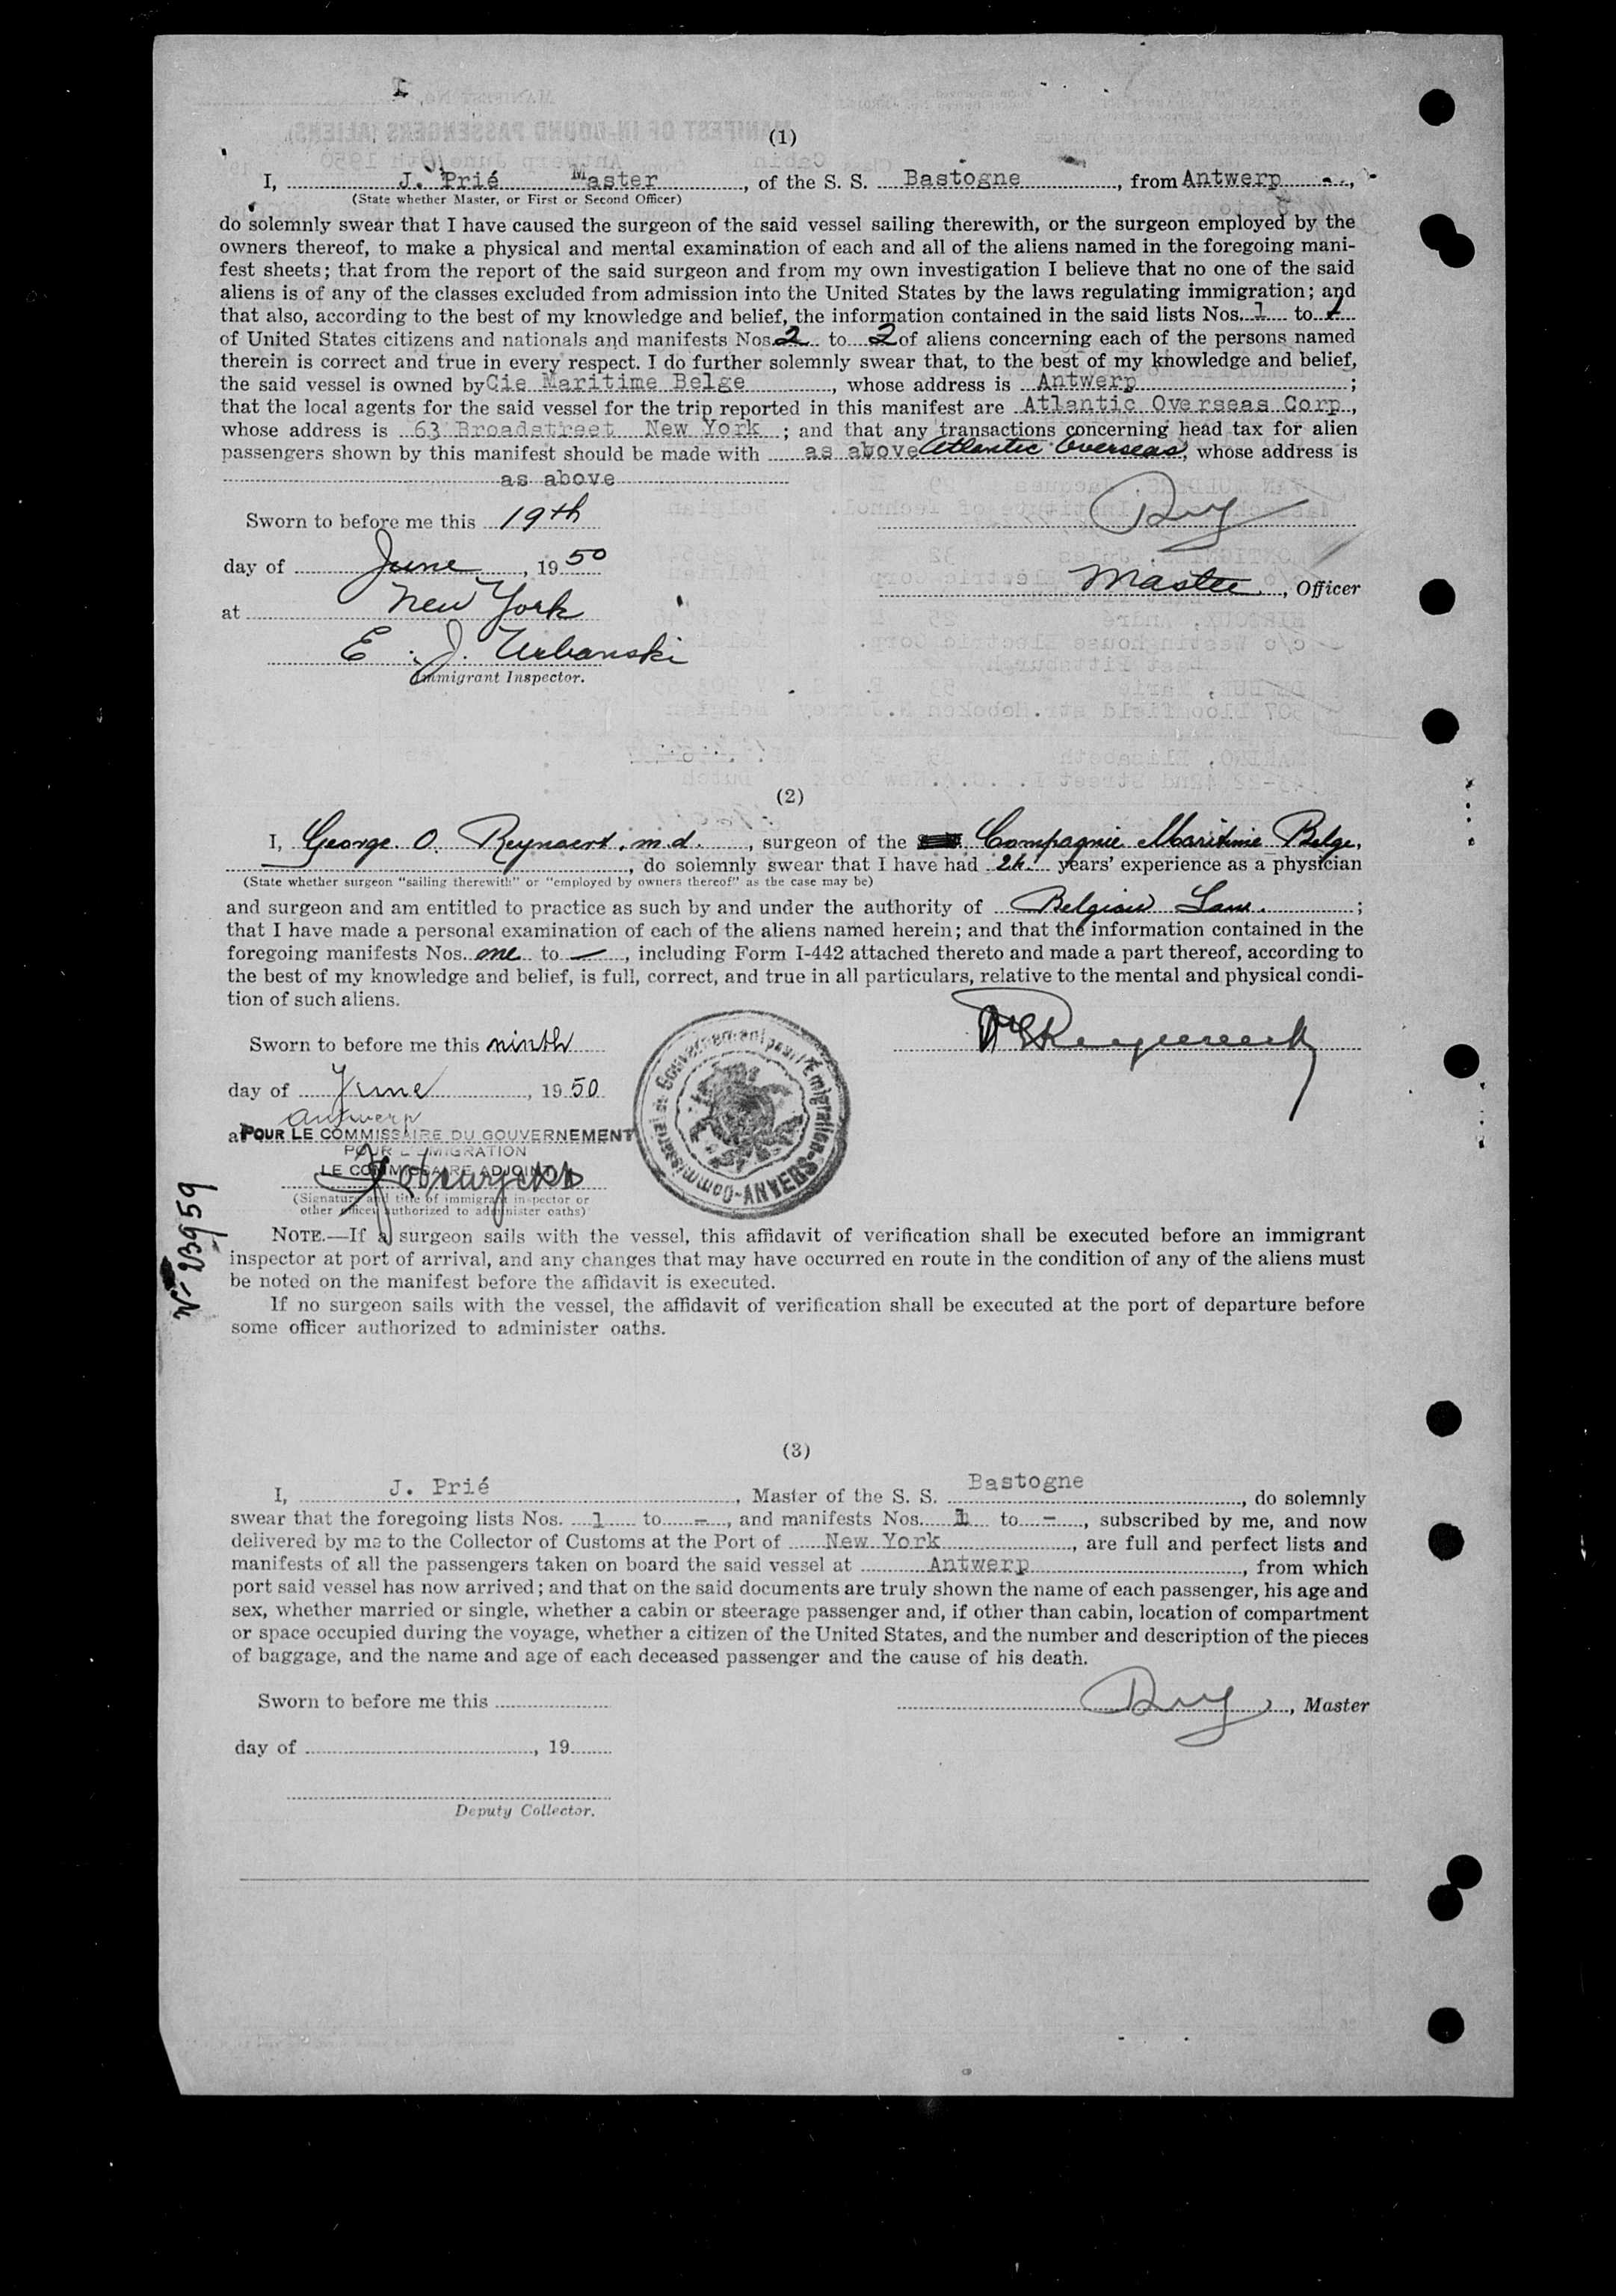 (1)
I, J. Prié Master, of the S. S. Bastogne, from Antwerp,
(State whether Master, or First or Second Officer)
do solemnly swear that I have caused the surgeon of the said vessel sailing therewith, or the surgeon employed by the
owners thereof, to make a physical and mental examination of each and all of the aliens named in the foregoing mani-
fest sheets; that from the report of the said surgeon and from my own investigation I believe that no one of the said
aliens is of any of the classes excluded from admission into the United States by the laws regulating immigration; and
that also, according to the best of my knowledge and belief, the information contained in the said lists Nos. 1 to 1
of United States citizens and nationals and manifests Nos. 2 to 2 of aliens concerning each of the persons named
therein is correct and true in every respect. I do further solemnly swear that, to the best of my knowledge and belief,
the said vessel is owned by Cie Maritime Belge, whose address is Antwerp;
that the local agents for the said vessel for the trip reported in this manifest are Atlantic Overseas Corp.,
whose address is 63 Broadstreet New York; and that any transactions concerning head tax for alien
passengers shown by this manifest should be made with as above Atlantic Overseas, whose address is
as above
Sworn to before me this 19th
day of June, 1950
Master, Officer
at New York
E. J. Urbanski
Immigrant Inspector.
(2)
I, George O. Reynaert. m.d., surgeon of the Compagnie Maritime Belge,
, do solemnly swear that I have had 24 years' experience as a physician
(State whether surgeon "sailing therewith" or "employed by owners thereof" as the case may be)
and surgeon and am entitled to practice as such by and under the authority of Belgian Law.;
that I have made a personal examination of each of the aliens named herein; and that the information contained in the
foregoing manifests Nos. one to —, including Form I-442 attached thereto and made a part thereof, according to
the best of my knowledge and belief, is full, correct, and true in all particulars, relative to the mental and physical condi-
tion of such aliens.
Sworn to before me this ninth
day of June, 1950
Antwerp
at POUR LE COMMISSAIRE DU GOUVERNEMENT
POUR L'EMIGRATION
LE COMMISSAIRE ADJOINT
Commissariat du Gouvernement pour l'Emigration - ANVERS -
(Signature and title of immigrant inspector or
other officer authorized to administer oaths)
No 23959
NOTE.—If a surgeon sails with the vessel, this affidavit of verification shall be executed before an immigrant
inspector at port of arrival, and any changes that may have occurred en route in the condition of any of the aliens must
be noted on the manifest before the affidavit is executed.
If no surgeon sails with the vessel, the affidavit of verification shall be executed at the port of departure before
some officer authorized to administer oaths.
(3)
I, J. Prié, Master of the S. S. Bastogne, do solemnly
swear that the foregoing lists Nos. 1 to -, and manifests Nos. 1 to -, subscribed by me, and now
delivered by me to the Collector of Customs at the Port of New York, are full and perfect lists and
manifests of all the passengers taken on board the said vessel at Antwerp, from which
port said vessel has now arrived; and that on the said documents are truly shown the name of each passenger, his age and
sex, whether married or single, whether a cabin or steerage passenger and, if other than cabin, location of compartment
or space occupied during the voyage, whether a citizen of the United States, and the number and description of the pieces
of baggage, and the name and age of each deceased passenger and the cause of his death.
Sworn to before me this
, Master
day of , 19
Deputy Collector.